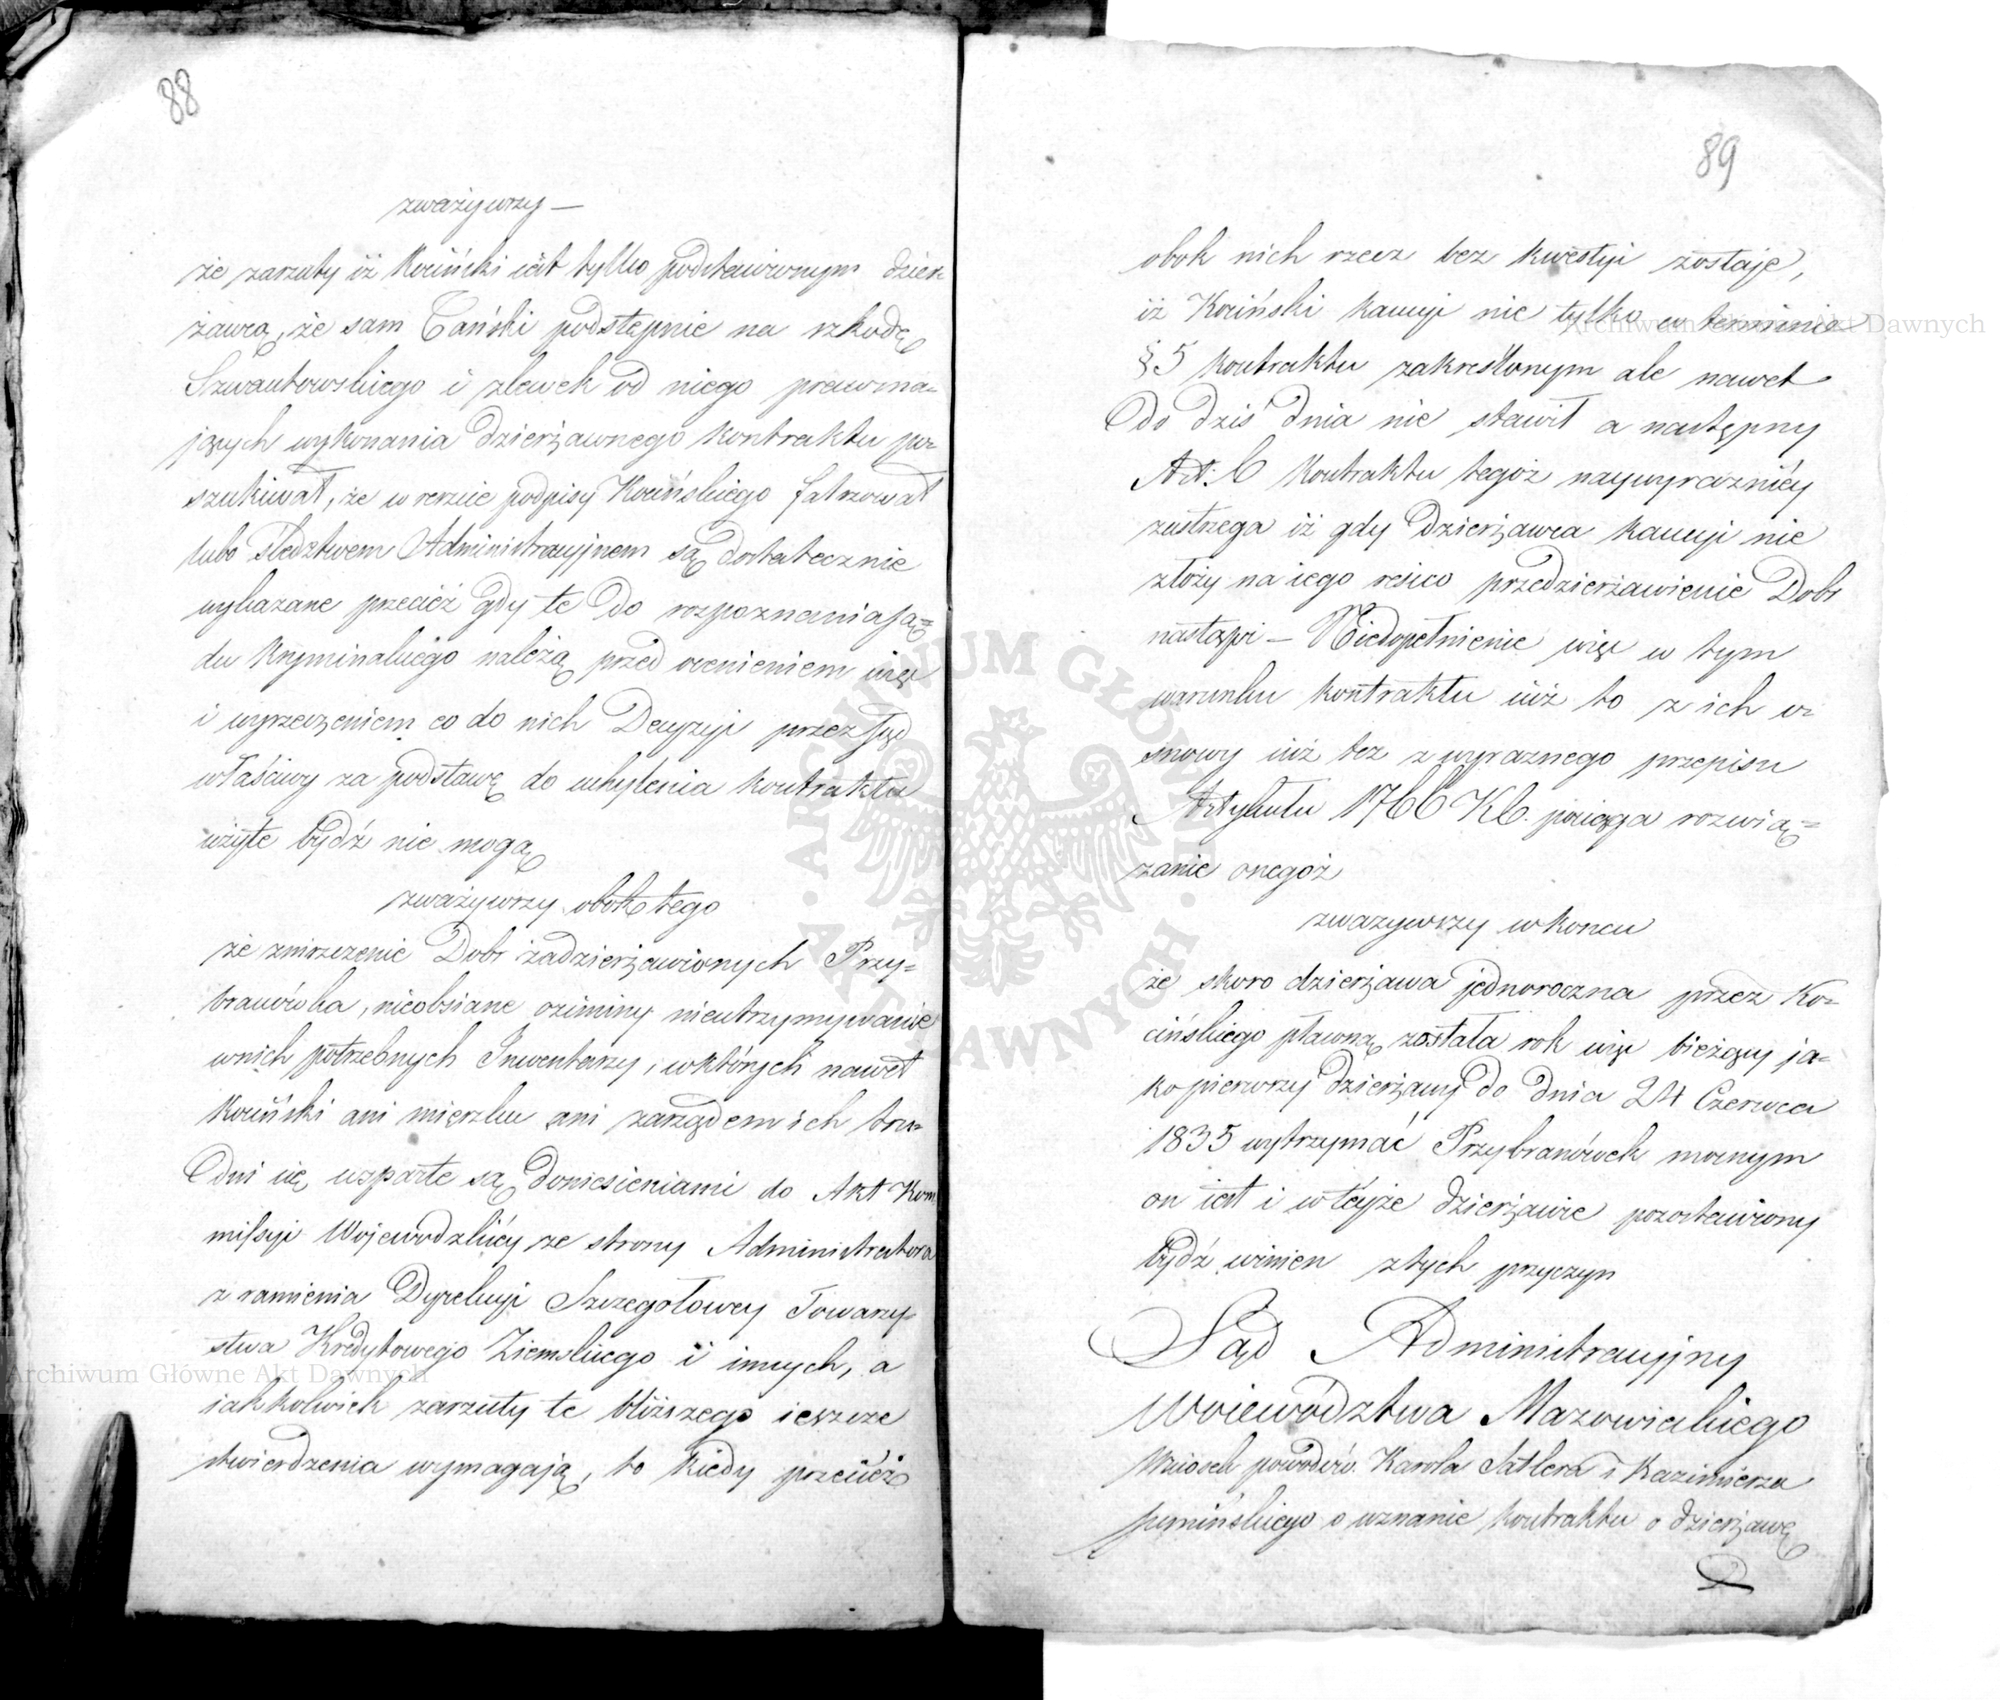 88
zważywszy —
że zarzuty iż Kociński iest tylko podstawionym dzier-
żawcą, że sam Cański podstępnie na szkodę
Szwantowskiego i zlewek od niego prawma-
jących wykonania dzierżawnego kontraktu po-
szukiwał, że w rzezie podpisy Kocińskiego fałszował
lubo śledztwem Administracyjnem są dostatecznie
wykazane przecież gdy te do rozpoznania Są-
du Kryminalnego należą przed ocenieniem więc
i wyrzeczeniem co do nich Decyzyi przez Sąd
właściwy za podstawę do uchylenia kontraktu
użyte bydź nie mogą
zważywszy obok tego
że zniszczenie Dobr zadzierżawionych Przy-
branówka, nieobsiane oziminy nieutrzymywanie
wnich potrzebnych Inwentarzy, wktórych nawet
Kociński ani mieszka ani zarządem ich tru-
dni się wsparte są doniesieniami do Akt Kom
missyi Woiewodzkiéy ze strony Administratora
z ramienia Dyrekcyi Szczegołowey Towarzy-
stwa Kredytowego Ziemskiego i innych, a
iakkolwiek zarzuty te bliższego ieszcze
stwierdzenia wymagają, to kiedy przecież
89
obok nich rzecz bez kwestyi zostaje,
iż Kociński kaucyi nie tylko w terminie
§ 5 kontraktu zakreślonym ale nawet
do dziś dnia nie stawił a następny
Art: 6 kontraktu tegoż naywyraźniéy
zastrzega iż gdy Dzierżawca kaucyi nie
złoży na iego resico przedzierżawienie Dobr
nastąpi — Niedopełnienie więc w tym
warunku kontraktu iuż to z ich u-
mowy iuż też z wyraznego przepisu
Artykułu 1766 KC. pociąga rozwią-
zanie onegoż
zważywszy wkoncu
że skoro dzierżawa jednoroczna przez Ko-
cińskiego pławną została rok więc bieżący ja-
ko pierwszy dzierżawy do dnia 24 Czerwca
1835 wytrzymać Przybranówek mocnym
on iest i wtéyże dzierżawie pozostawiony
bydź winien z tych przyczyn
Sąd Administracyjny
Woiewództwa Mazowieckiego
Wniosek powodów Karola Satlera i Kazimierza
Jemińskiego o uznanie kontraktu o dzierżawę
Archiwum Główne Akt Dawnych
Archiwum Główne Akt Dawnych
ARCHIWUM GŁÓWNE · AKT DAWNYCH ·